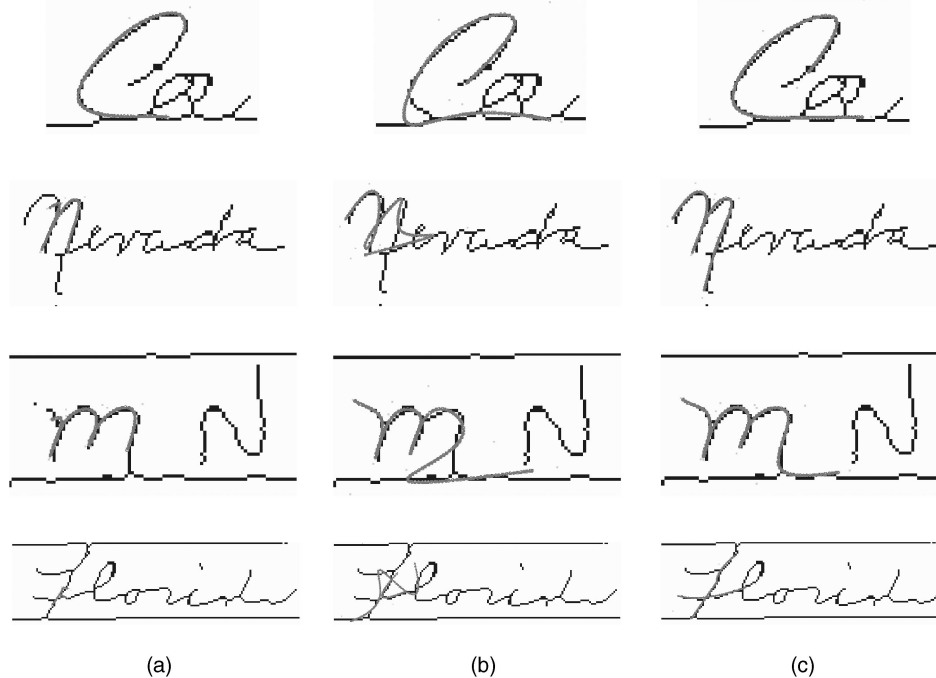 Ca Ca Ca
Nevada Nevada Nevada
m N m N m N
Florid Florid Florid
(a) (b) (c)